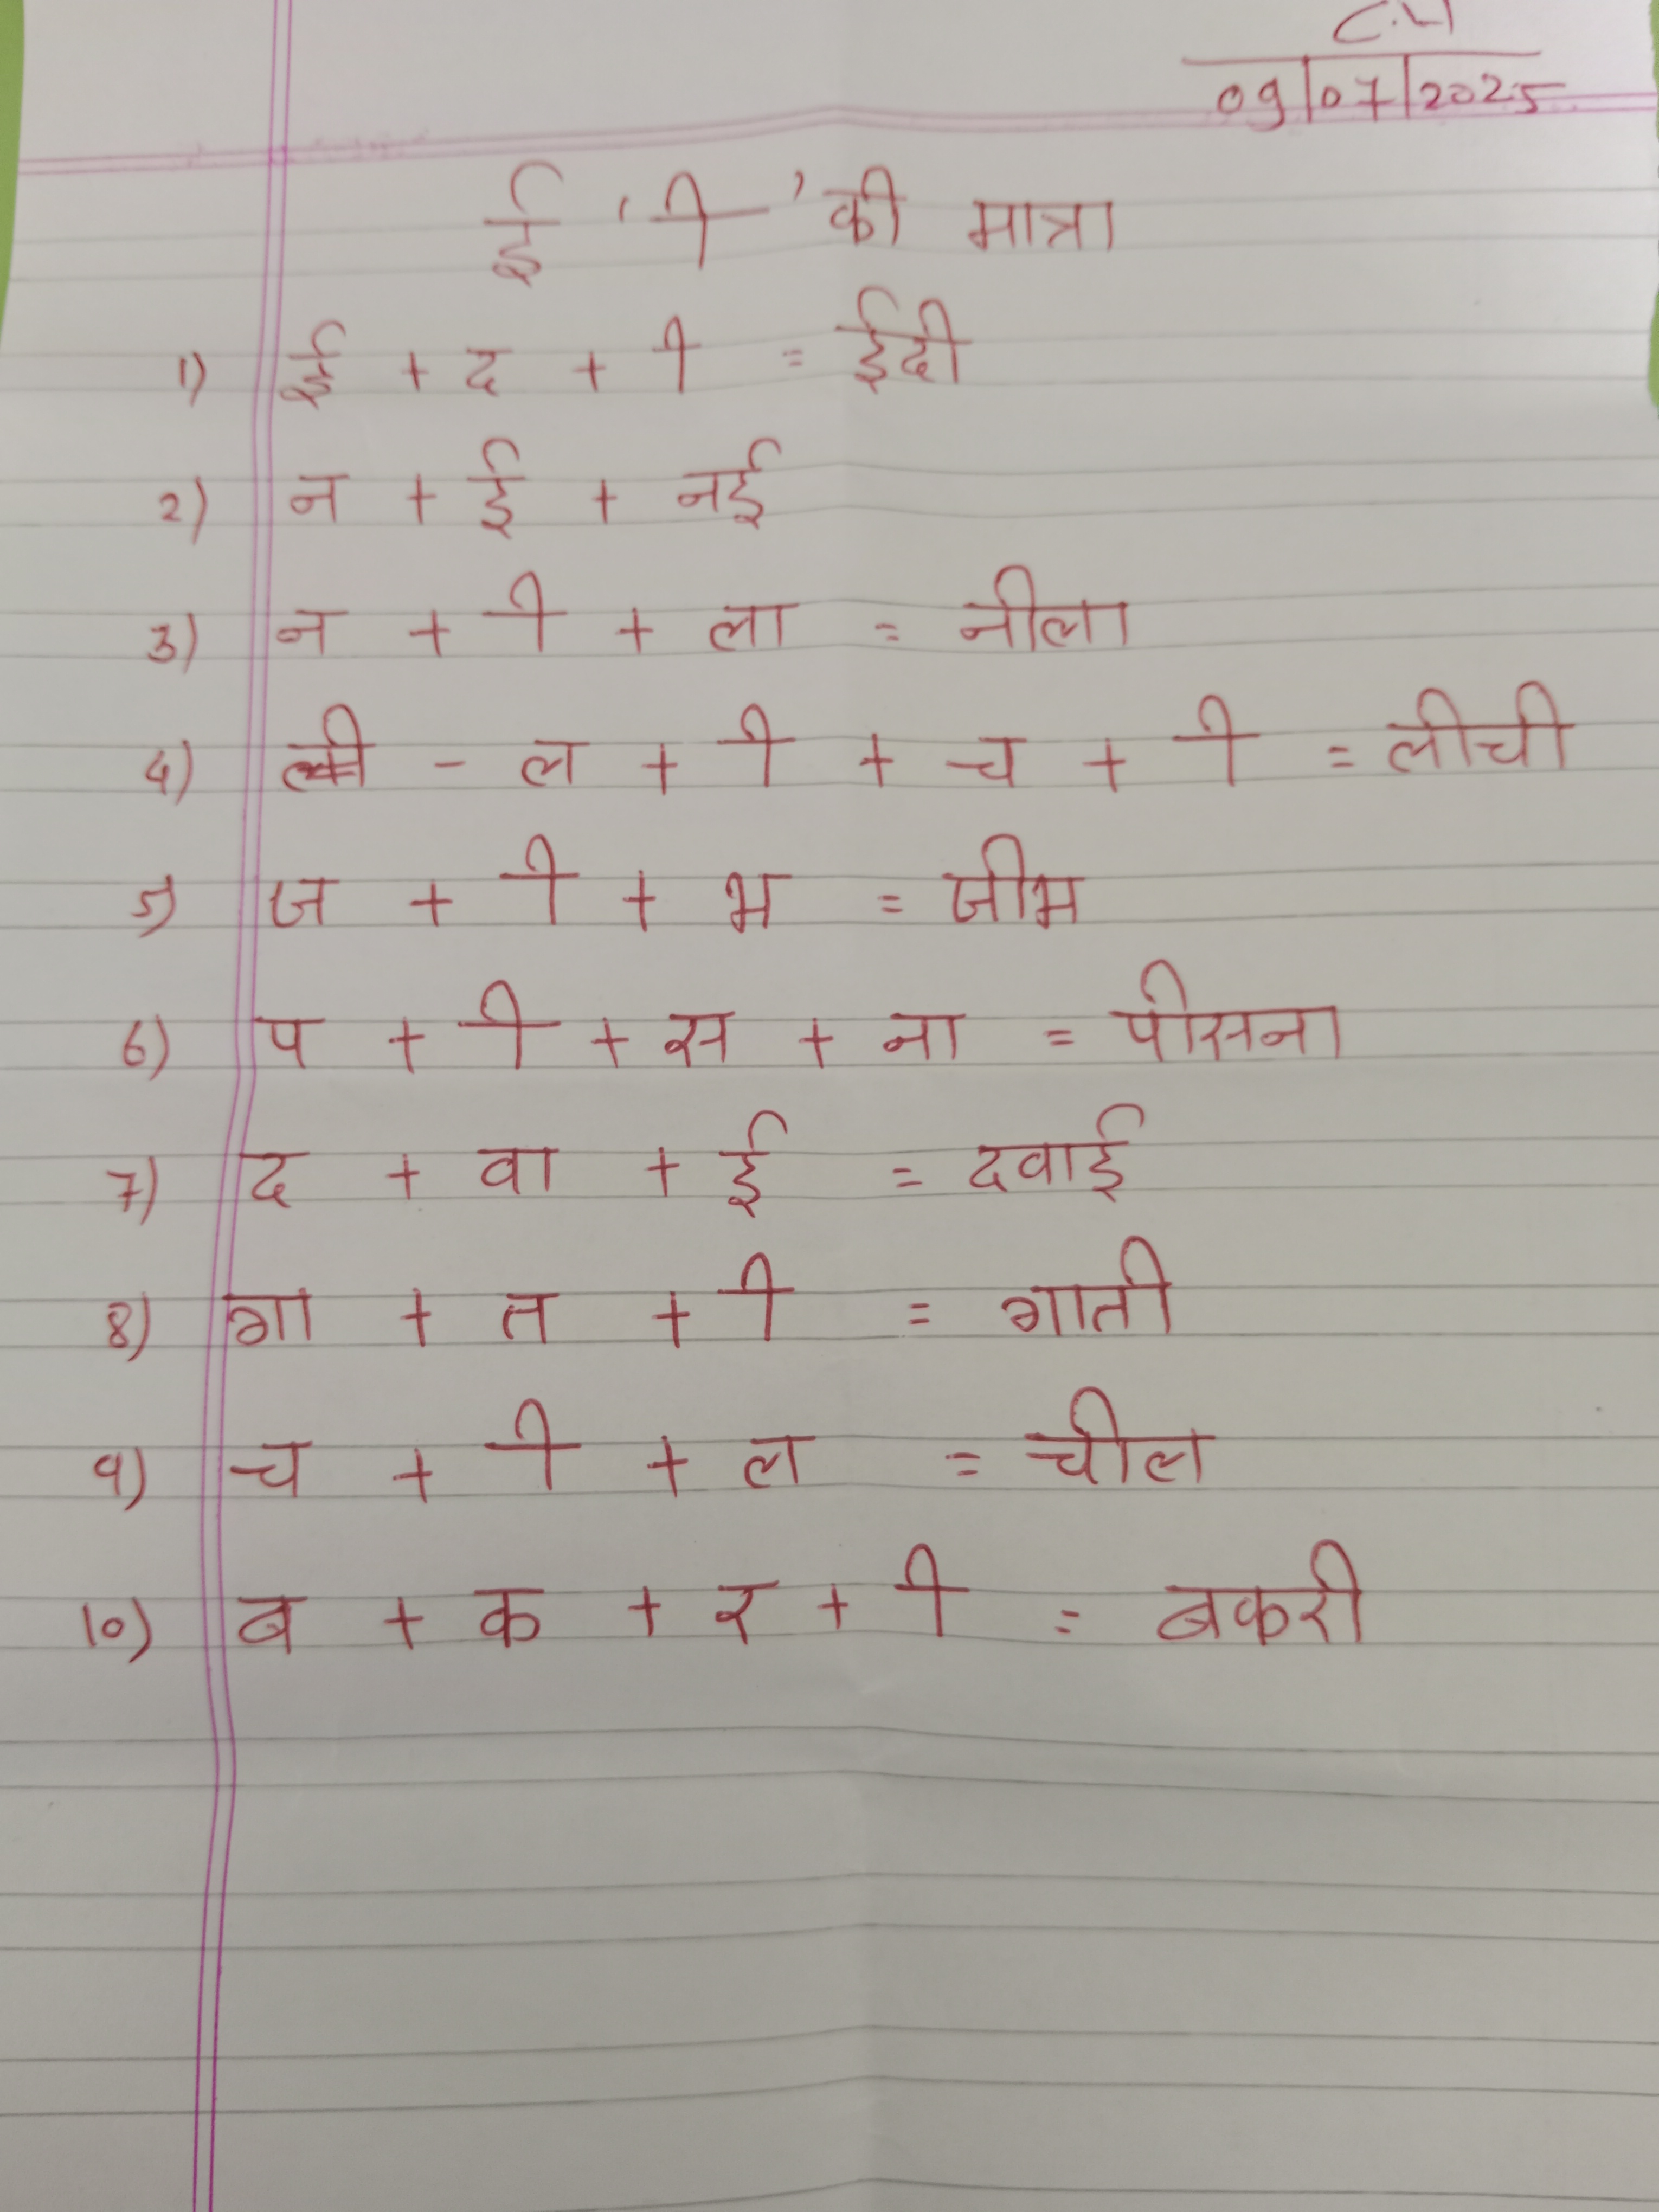 C.W
09/07/2025
ई 'ी' की मात्रा
1) ई + द + ी = ईदी
2) न + ई + नई
3) न + ी + ला = नीला
4) - ल + ी + च + ी = लीची
5) ज + ी + भ = जीभ
6) प + ी + स + ना = पीसना
7) द + वा + ई = दवाई
8) गा + त + ी = गाती
9) च + ी + ल = चील
10) ब + क + र + ी = बकरी